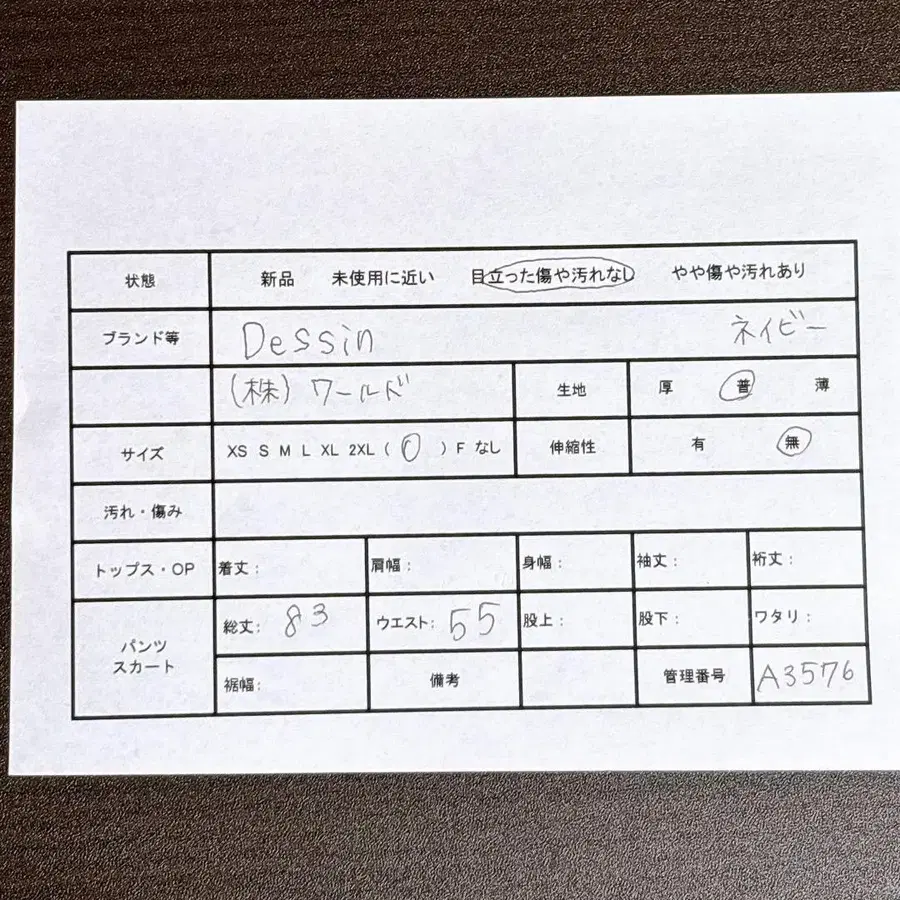 状態 新品 未使用に近い 目立った傷や汚れなし やや傷や汚れあり
ブランド等 Dessin ネイビー
(株)ワールド 生地 厚 普 薄
サイズ XS S M L XL 2XL ( 0 ) F なし 伸縮性 有 無
汚れ・傷み
トップス・OP 着丈: 肩幅: 身幅: 袖丈: 裄丈:
パンツ スカート 総丈: 83 ウエスト: 55 股上: 股下: ワタリ:
裾幅: 備考 管理番号 A3576